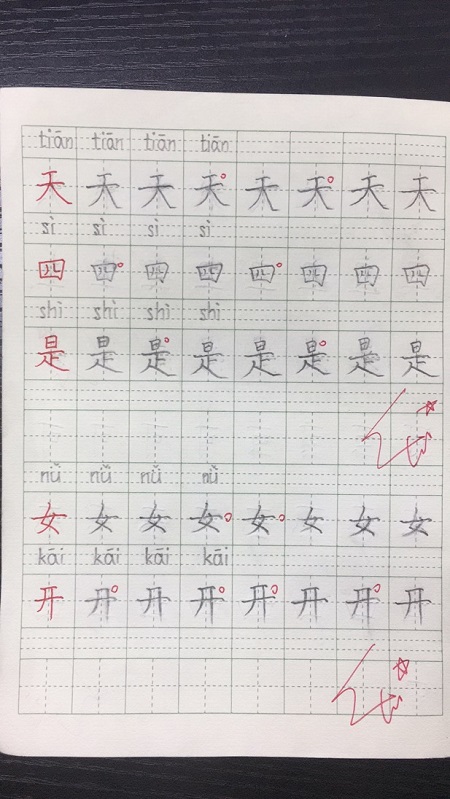 tiān tiān tiān tiān
天 天 天 天 天 天 天 天
sì sì sì sì
四 四 四 四 四 四 四 四
shì shì shì shì
是 是 是 是 是 是 是 是
nǚ nǚ nǚ nǚ
女 女 女 女 女 女 女 女
kāi kāi kāi kāi
开 开 开 开 开 开 开 开